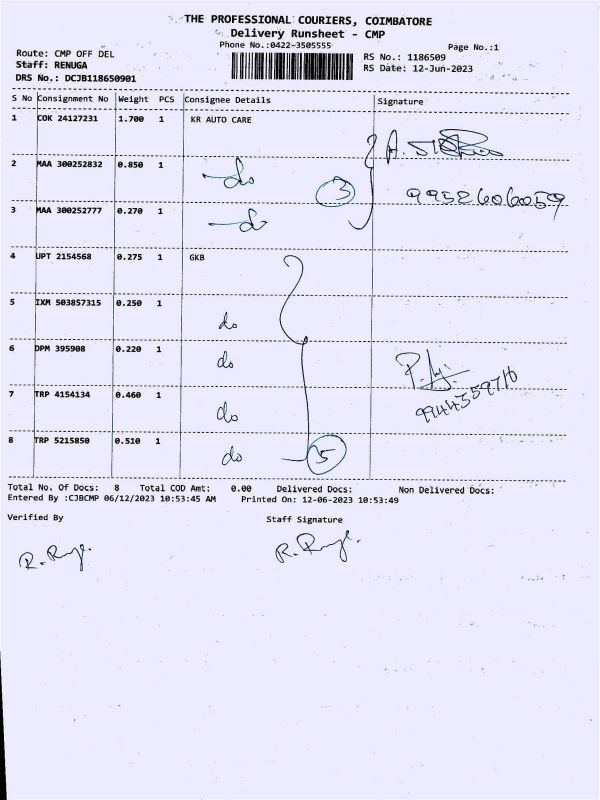 THE PROFESSIONAL COURIERS, COIMBATORE
Delivery Runsheet - CMP
Phone No.:0422-3505555
Page No.:1
Route: CMP OFF DEL
RS No.: 1186509
Staff: RENUGA
RS Date: 12-Jun-2023
DRS No.: DCJB118650901
S No Consignment No Weight PCS Consignee Details Signature
1 COK 24127231 1.700 1 KR AUTO CARE
A.
2 MAA 300252832 0.850 1 do 3
9952606059
3 MAA 300252777 0.270 1 do
4 UPT 2154568 0.275 1 GKB
5 IXM 503857315 0.250 1 do
6 DPM 395908 0.220 1 do
7 TRP 4154134 0.460 1 do
8 TRP 5215850 0.510 1 do 5
Total No. Of Docs: 8 Total COD Amt: 0.00 Delivered Docs: Non Delivered Docs:
Entered By :CJBCMP 06/12/2023 10:53:45 AM Printed On: 12-06-2023 10:53:49
Verified By Staff Signature